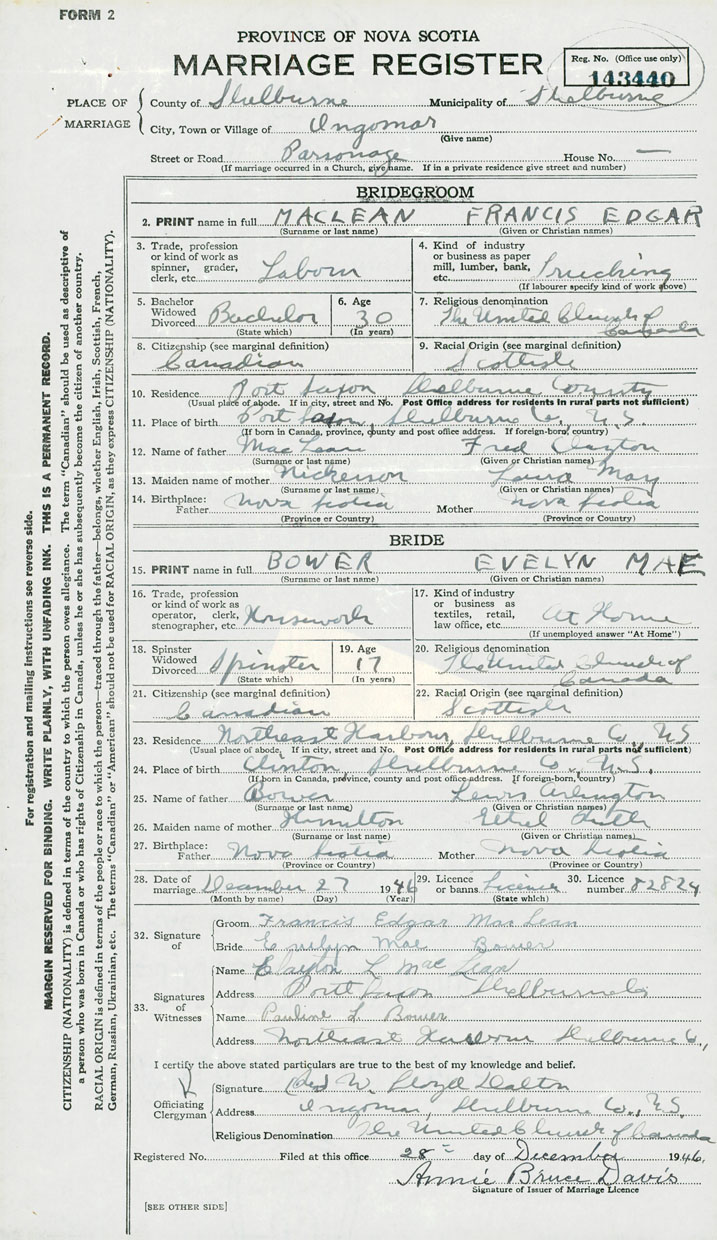 FORM 2
PROVINCE OF NOVA SCOTIA
MARRIAGE REGISTER
Reg. No. (Office use only)
143440
PLACE OF MARRIAGE
County of Shelburne Municipality of Shelburne
City, Town or Village of Ingomar
(Give name)
Street or Road Parsonage House No. —
(If marriage occurred in a Church, give name. If in a private residence give street and number)
BRIDEGROOM
2. PRINT name in full MACLEAN FRANCIS EDGAR
(Surname or last name) (Given or Christian names)
3. Trade, profession or kind of work as spinner, grader, clerk, etc. Labour
4. Kind of industry or business as paper mill, lumber, bank, etc. Trucking
(If labourer specify kind of work above)
5. Bachelor Widowed Divorced Bachelor (State which)
6. Age 30 (In years)
7. Religious denomination The United Church of Canada
8. Citizenship (see marginal definition) Canadian
9. Racial Origin (see marginal definition) Scottish
10. Residence Port Saxon Shelburne County
(Usual place of abode. If in city, street and No. Post Office address for residents in rural parts not sufficient)
11. Place of birth Port Saxon, Shelburne Co., N.S.
(If born in Canada, province, county and post office address. If foreign-born, country)
12. Name of father MacLean Fred Clayton
(Surname or last name) (Given or Christian names)
13. Maiden name of mother Nickerson Laura May
(Surname or last name) (Given or Christian names)
14. Birthplace: Father Nova Scotia Mother Nova Scotia
(Province or Country) (Province or Country)
BRIDE
15. PRINT name in full BOWER EVELYN MAE
(Surname or last name) (Given or Christian names)
16. Trade, profession or kind of work as operator, clerk, stenographer, etc. Housework
17. Kind of industry or business as textiles, retail, law office, etc. At Home
(If unemployed answer "At Home")
18. Spinster Widowed Divorced Spinster (State which)
19. Age 17 (In years)
20. Religious denomination The United Church of Canada
21. Citizenship (see marginal definition) Canadian
22. Racial Origin (see marginal definition) Scottish
23. Residence Northeast Harbour, Shelburne Co., N.S
(Usual place of abode, If in city, street and No. Post Office address for residents in rural parts not sufficient)
24. Place of birth Clinton, Shelburne Co., N.S.
(If born in Canada, province, county and post office address. If foreign-born, country)
25. Name of father Bower Lewis Arlington
(Surname or last name) (Given or Christian names)
26. Maiden name of mother Hamilton Ethel
(Surname or last name) (Given or Christian names)
27. Birthplace: Father Nova Scotia Mother Nova Scotia
(Province or Country) (Province or Country)
28. Date of marriage December 27 1946
(Month by name) (Day) (Year)
29. Licence or banns Licence (State which)
30. Licence number 82824
32. Signature of
Groom Francis Edgar MacLean
Bride Evelyn Mae Bower
33. Signatures of Witnesses
Name Clayton L MacLean
Address Port Saxon Shelburne Co
Name Pauline L Bower
Address Northeast Harbour Shelburne Co.,
I certify the above stated particulars are true to the best of my knowledge and belief.
Officiating Clergyman
Signature W. Lloyd Dalton
Address Ingomar, Shelburne Co., N.S.
Religious Denomination The United Church of Canada
Registered No. Filed at this office 28 day of December 1946.
Annie Bruce Davis
Signature of Issuer of Marriage Licence
[SEE OTHER SIDE]
For registration and mailing instructions see reverse side.
MARGIN RESERVED FOR BINDING. WRITE PLAINLY, WITH UNFADING INK. THIS IS A PERMANENT RECORD.
CITIZENSHIP (NATIONALITY) is defined in terms of the country to which the person owes allegiance. The term "Canadian" should be used as descriptive of
a person who was born in Canada or who has rights of Citizenship in Canada, unless he or she has subsequently become the citizen of another country.
RACIAL ORIGIN is defined in terms of the people or race to which the person—traced through the father—belongs, whether English, Irish, Scottish, French,
German, Russian, Ukrainian, etc. The terms "Canadian" or "American" should not be used for RACIAL ORIGIN, as they express CITIZENSHIP (NATIONALITY).